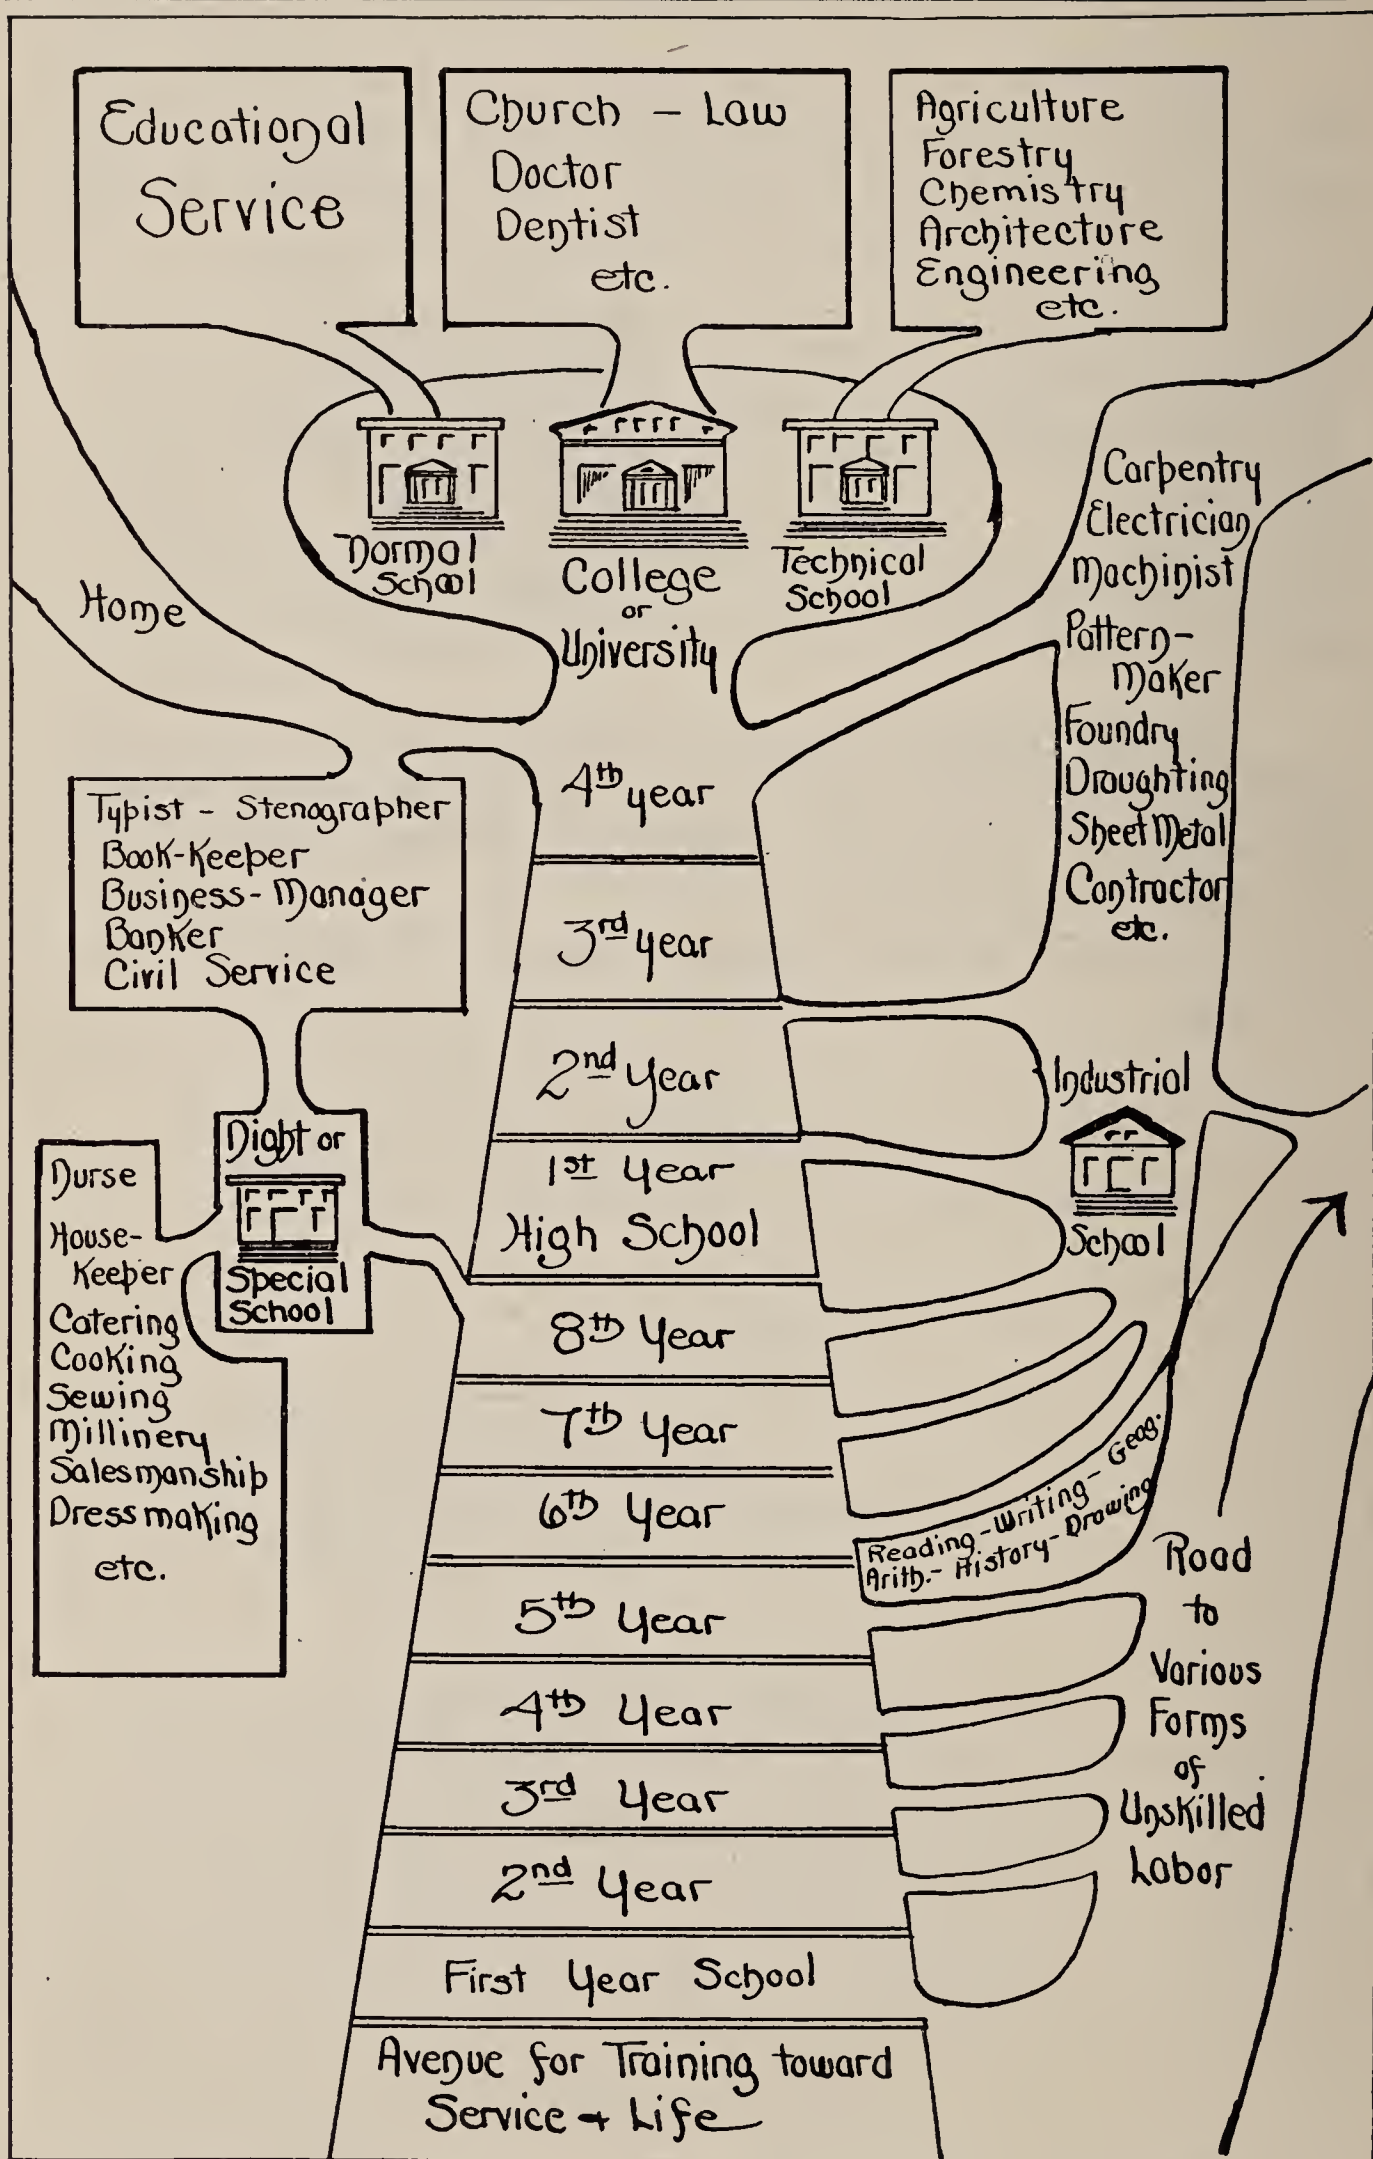 Educational
Service
Church - Law
Doctor
Dentist
etc.
Agriculture
Forestry
Chemistry
Architecture
Engineering
etc.
Normal
School
College
or
University
Technical
School
Home
Carpentry
Electrician
Machinist
Pattern-
Maker
Foundry
Draughting
Sheet Metal
Contractor
etc.
Typist - Stenographer
Book-Keeper
Business-Manager
Banker
Civil Service
Night or
Special
School
Nurse
House-
Keeper
Catering
Cooking
Sewing
Millinery
Salesmanship
Dressmaking
etc.
Industrial
School
4th year
3rd year
2nd Year
1st Year
High School
8th Year
7th Year
6th Year
5th Year
4th Year
3rd Year
2nd Year
First Year School
Reading-Writing-Geog.
Arith.-History-Drawing
Road
to
Various
Forms
of
Unskilled
Labor
Avenue for Training toward
Service + Life